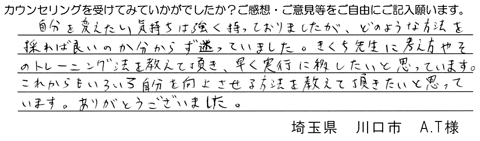 カウンセリングを受けてみていかがでしたか？ご感想・ご意見等をご自由にご記入願います。
自分を変えたい気持ちは強く持っておりましたが、どのような方法を
採れば良いのか分からず迷っていました。きくち先生に考え方やそ
のトレーニング法を教えて頂き、早く実行に移したいと思っています。
これからもいろいろ自分を向上させる方法を教えて頂きたいと思って
います。ありがとうございました。
埼玉県　川口市　A.T様